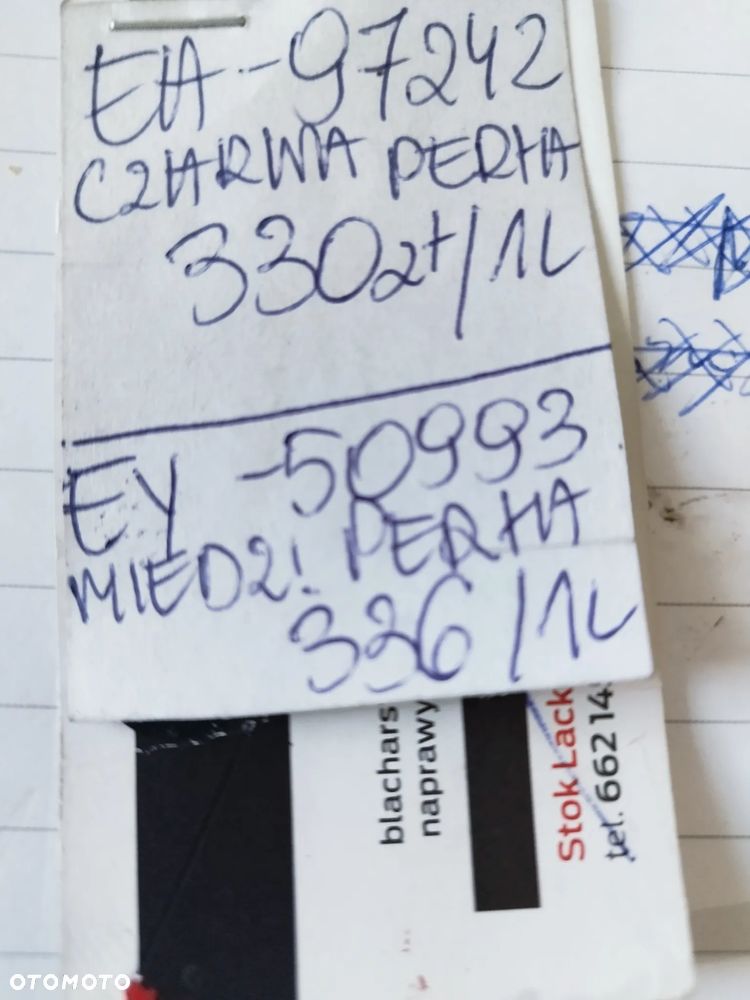 EA-97242
CZARNA PERŁA
330zł/1L
EY-50993
MIEDŹ! PERŁA
336/1L
blachars
naprawy
Stok Lack
tel. 662 14
OTOMOTO